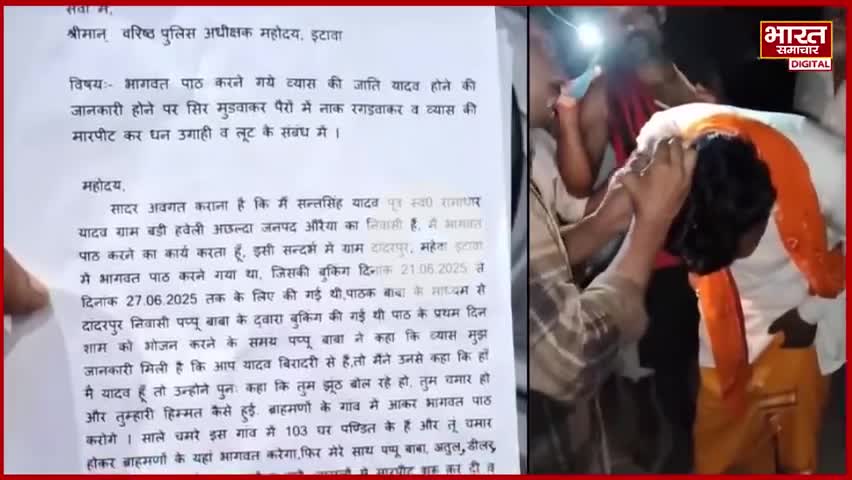 सेवा में,
श्रीमान् वरिष्ठ पुलिस अधीक्षक महोदय, इटावा
विषयः- भागवत पाठ करने गये व्यास की जाति यादव होने की
जानकारी होने पर सिर मुडवाकर पैरों में नाक रगडवाकर व व्यास की
मारपीट कर धन उगाही व लूट के संबंध में ।
महोदय,
सादर अवगत कराना है कि मैं सन्तसिंह यादव पुत्र स्व0 रामाधार
यादव ग्राम बड़ी हवेली अछल्दा जनपद औरैया का निवासी हूँ, मैं भागवत
पाठ करने का कार्य करता हूँ, इसी सन्दर्भ मे ग्राम दादरपुर, महेवा इटावा
मे भागवत पाठ करने गया था, जिसकी बुकिंग दिनांक 21.06.2025 से
दिनांक 27.06.2025 तक के लिए की गई थी,पाठक बाबा के माध्यम से
दादरपुर निवासी पप्पू बाबा के द्वारा बुकिंग की गई थी पाठ के प्रथम दिन
शाम को भोजन करने के समय पप्पू बाबा ने कहा कि व्यास मुझे
जानकारी मिली है कि आप यादव बिरादरी से हैं,तो मैंने उनसे कहा कि हाँ
मै यादव हूँ तो उन्होने पुनः कहा कि तुम झूंठ बोल रहे हो, तुम चमार हो
और तुम्हारी हिम्मत कैसे हुई. ब्राहमणों के गांव में आकर भागवत पाठ
करोगे । साले चमरे इस गांव में 103 घर पण्डित के हैं और तूं चमार
होकर ब्राहमणों के यहां भागवत करेगा,फिर मेरे साथ पप्पू बाबा, अतुल,डीलर,
मारपीट शुरू कर दी व
भारत
समाचार
DIGITAL